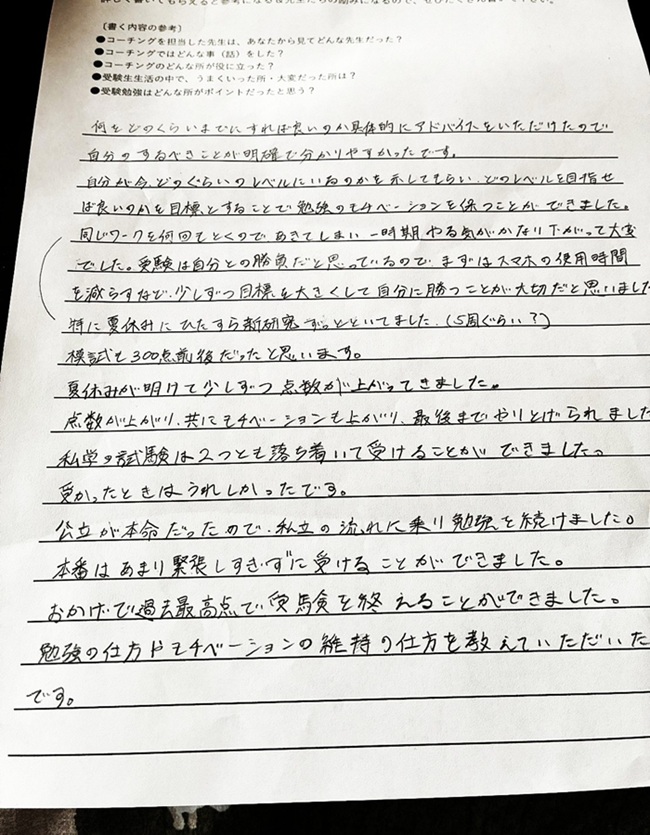 詳しく書いてもらえると参考になる
〔書く内容の参考〕
●コーチングを担当した先生は、あなたから見てどんな先生だった？
●コーチングではどんな事（話）をした？
●コーチングのどんな所が役に立った？
●受験生生活の中で、うまくいった所・大変だった所は？
●受験勉強はどんな所がポイントだったと思う？
何をどのくらいまでにすれば良いのか具体的にアドバイスをいただけたので
自分のするべきことが明確で分かりやすかったです。
自分が今、どのぐらいのレベルにいるのかを示してもらい、どのレベルを目指せ
ば良いのかを目標とすることで勉強のモチベーションを保つことができました。
同じワークを何回もとくのであきてしまい一時期やる気がかなり下がって大変
でした。受験は自分との勝負だと思っているので、まずはスマホの使用時間
を減らすなど、少しずつ目標を大きくして自分に勝つことが大切だと思いました
特に夏休みにひたすら新研究ずっとといてました。（5周ぐらい？）
模試も300点前後だったと思います。
夏休みが明けて少しずつ点数が上がってきました。
点数が上がり、共にモチベーションも上がり、最後までやりとげられました
私学の試験は2つとも落ち着いて受けることができました。
受かったときはうれしかったです。
公立が本命だったので、私立の流れに乗り勉強を続けました。
本番はあまり緊張しすぎずに受けることができました。
おかげで過去最高点で受験を終えることができました。
勉強の仕方やモチベーションの維持の仕方を教えていただいた
です。